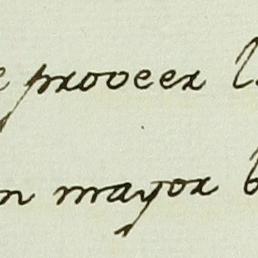 e proveer l
n mayor b